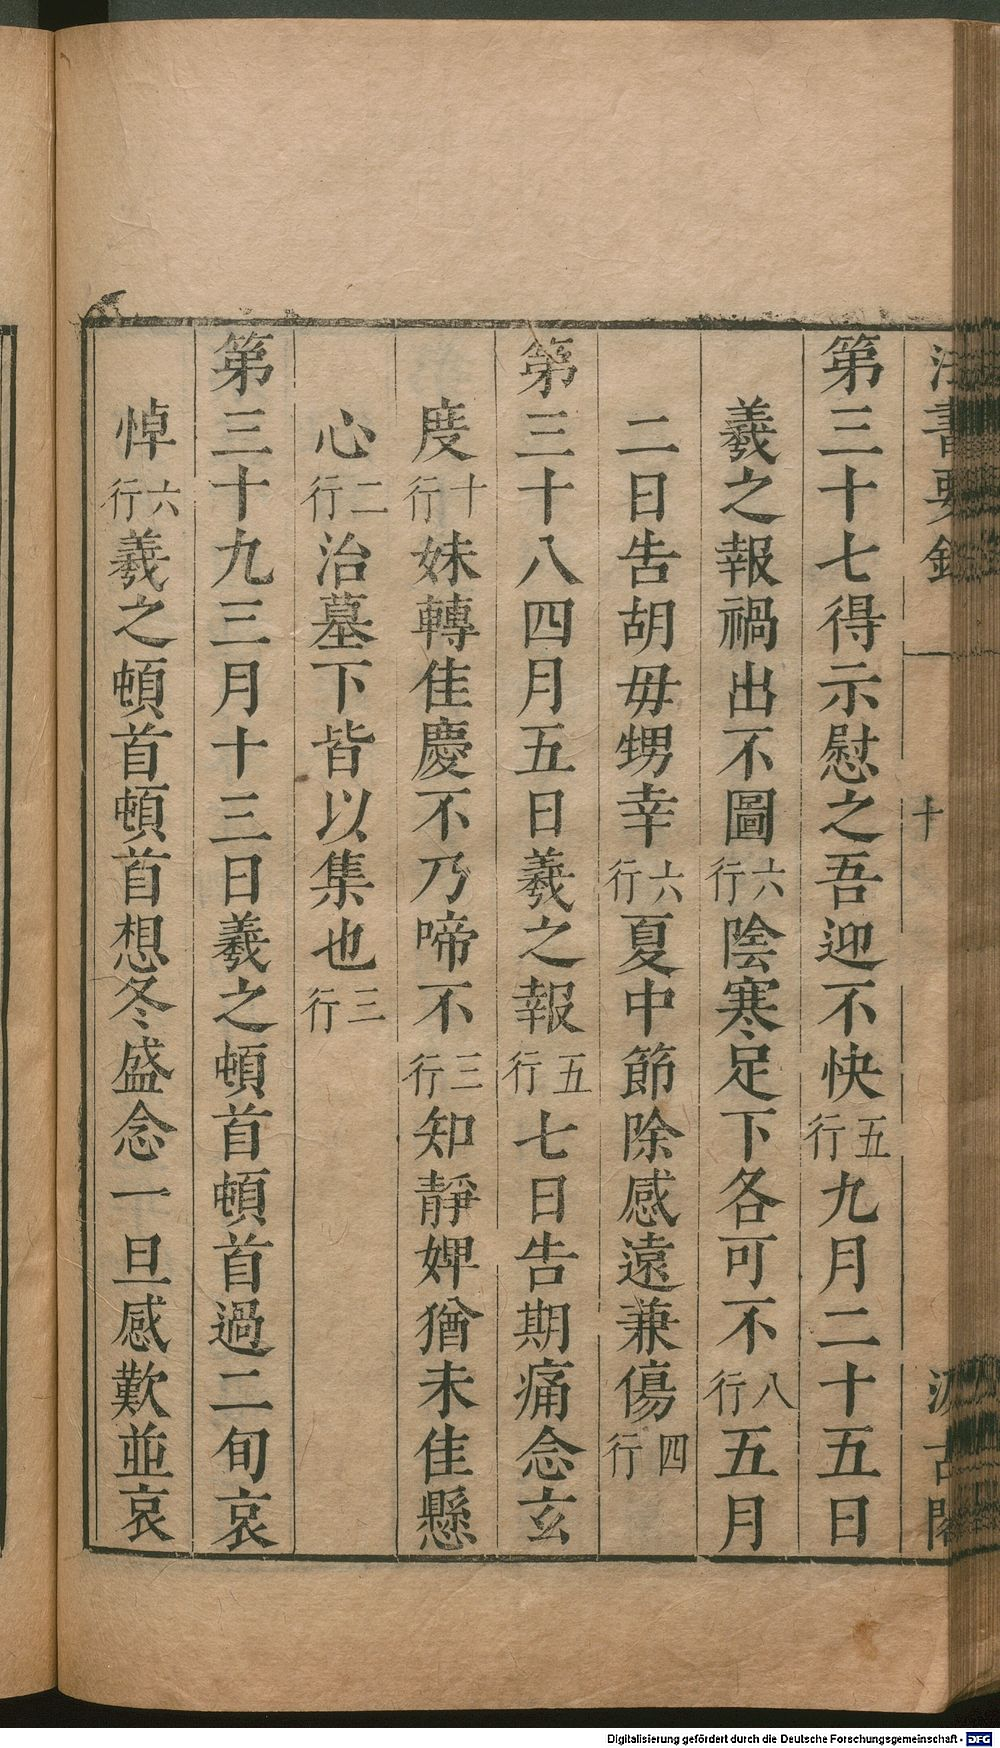 法書要錄
十
汲古閣
第三十七得示慰之吾迎不快五行九月二十五日
羲之報禍出不圖六行陰寒足下各可不八行五月
二日告胡毋甥幸六行夏中節除感遠兼傷四行
第三十八四月五日羲之報五行七日告期痛念玄
度十行妹轉佳慶不乃啼不三行知靜婢猶未佳懸
心二行治墓下皆以集也三行
第三十九三月十三日羲之頓首頓首過二旬哀
悼六行羲之頓首頓首想冬盛念一旦感歎並哀
Digitalisierung gefördert durch die Deutsche Forschungsgemeinschaft - DFG